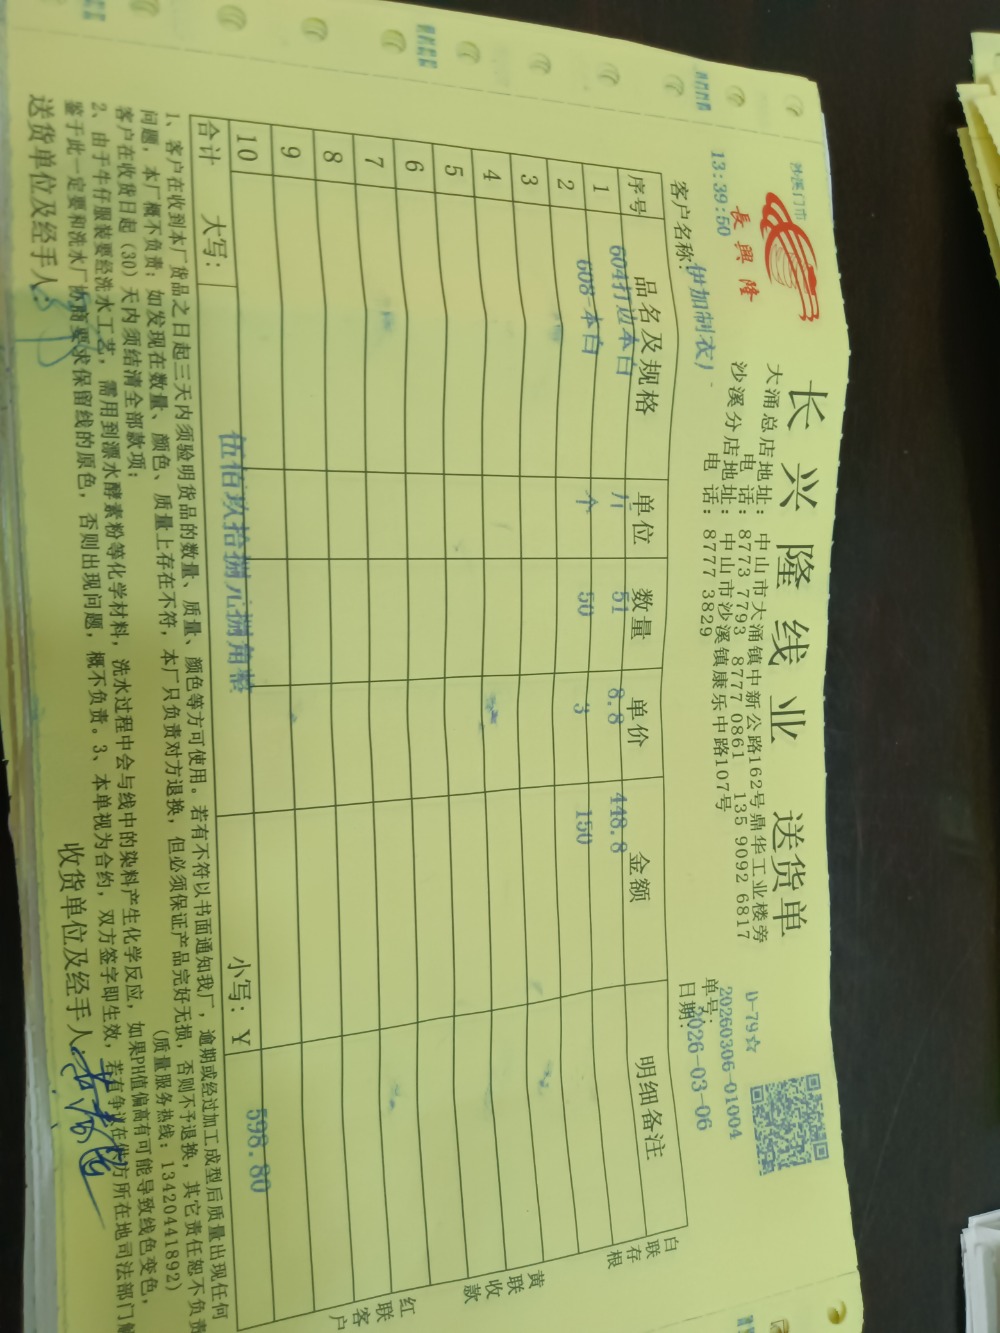 沙溪门市
長興隆
长兴隆线业 送货单
大涌总店地址:中山市大涌镇中新公路162号鼎华工业楼旁
电 话:8773 7793 8777 0861 135 9092 6817
沙溪分店地址:中山市沙溪镇康乐中路107号
电 话:8777 3829
D-79☆
单号:20260306-01004
日期:2026-03-06
13:39:50
客户名称:伊加制衣厂
序号 品名及规格 单位 数量 单价 金额 明细备注
1 604打边本白 斤 51 8.8 448.8
2 608-本白 个 50 3 150
3
4
5
6
7
8
9
10
合计 大写: 伍佰玖拾捌元捌角整 小写:Y 598.80
白联存根
黄联收款
红联客户
1、客户在收到本厂货品之日起三天内须验明货品的数量、质量、颜色等方可使用。若有不符以书面通知我厂,逾期或经过加工成型后质量出现任何
问题,本厂概不负责;如发现在数量、颜色、质量上存在不符,本厂只负责对方退换,但必须保证产品完好无损,否则不予退换,其它责任恕不负责
客户在收货日起(30)天内须结清全部款项; (质量服务热线:13420441892)
2、由于牛仔服装要经洗水工艺,需用到漂水酵素粉等化学材料,洗水过程中会与线中的染料产生化学反应,如果PH值偏高有可能导致线色变色,
鉴于此一定要和洗水厂协商要求保留线的原色,否则出现问题,概不负责。3、本单视为合约,双方签字即生效,若有争议在供方所在地司法部门
送货单位及经手人: 收货单位及经手人: